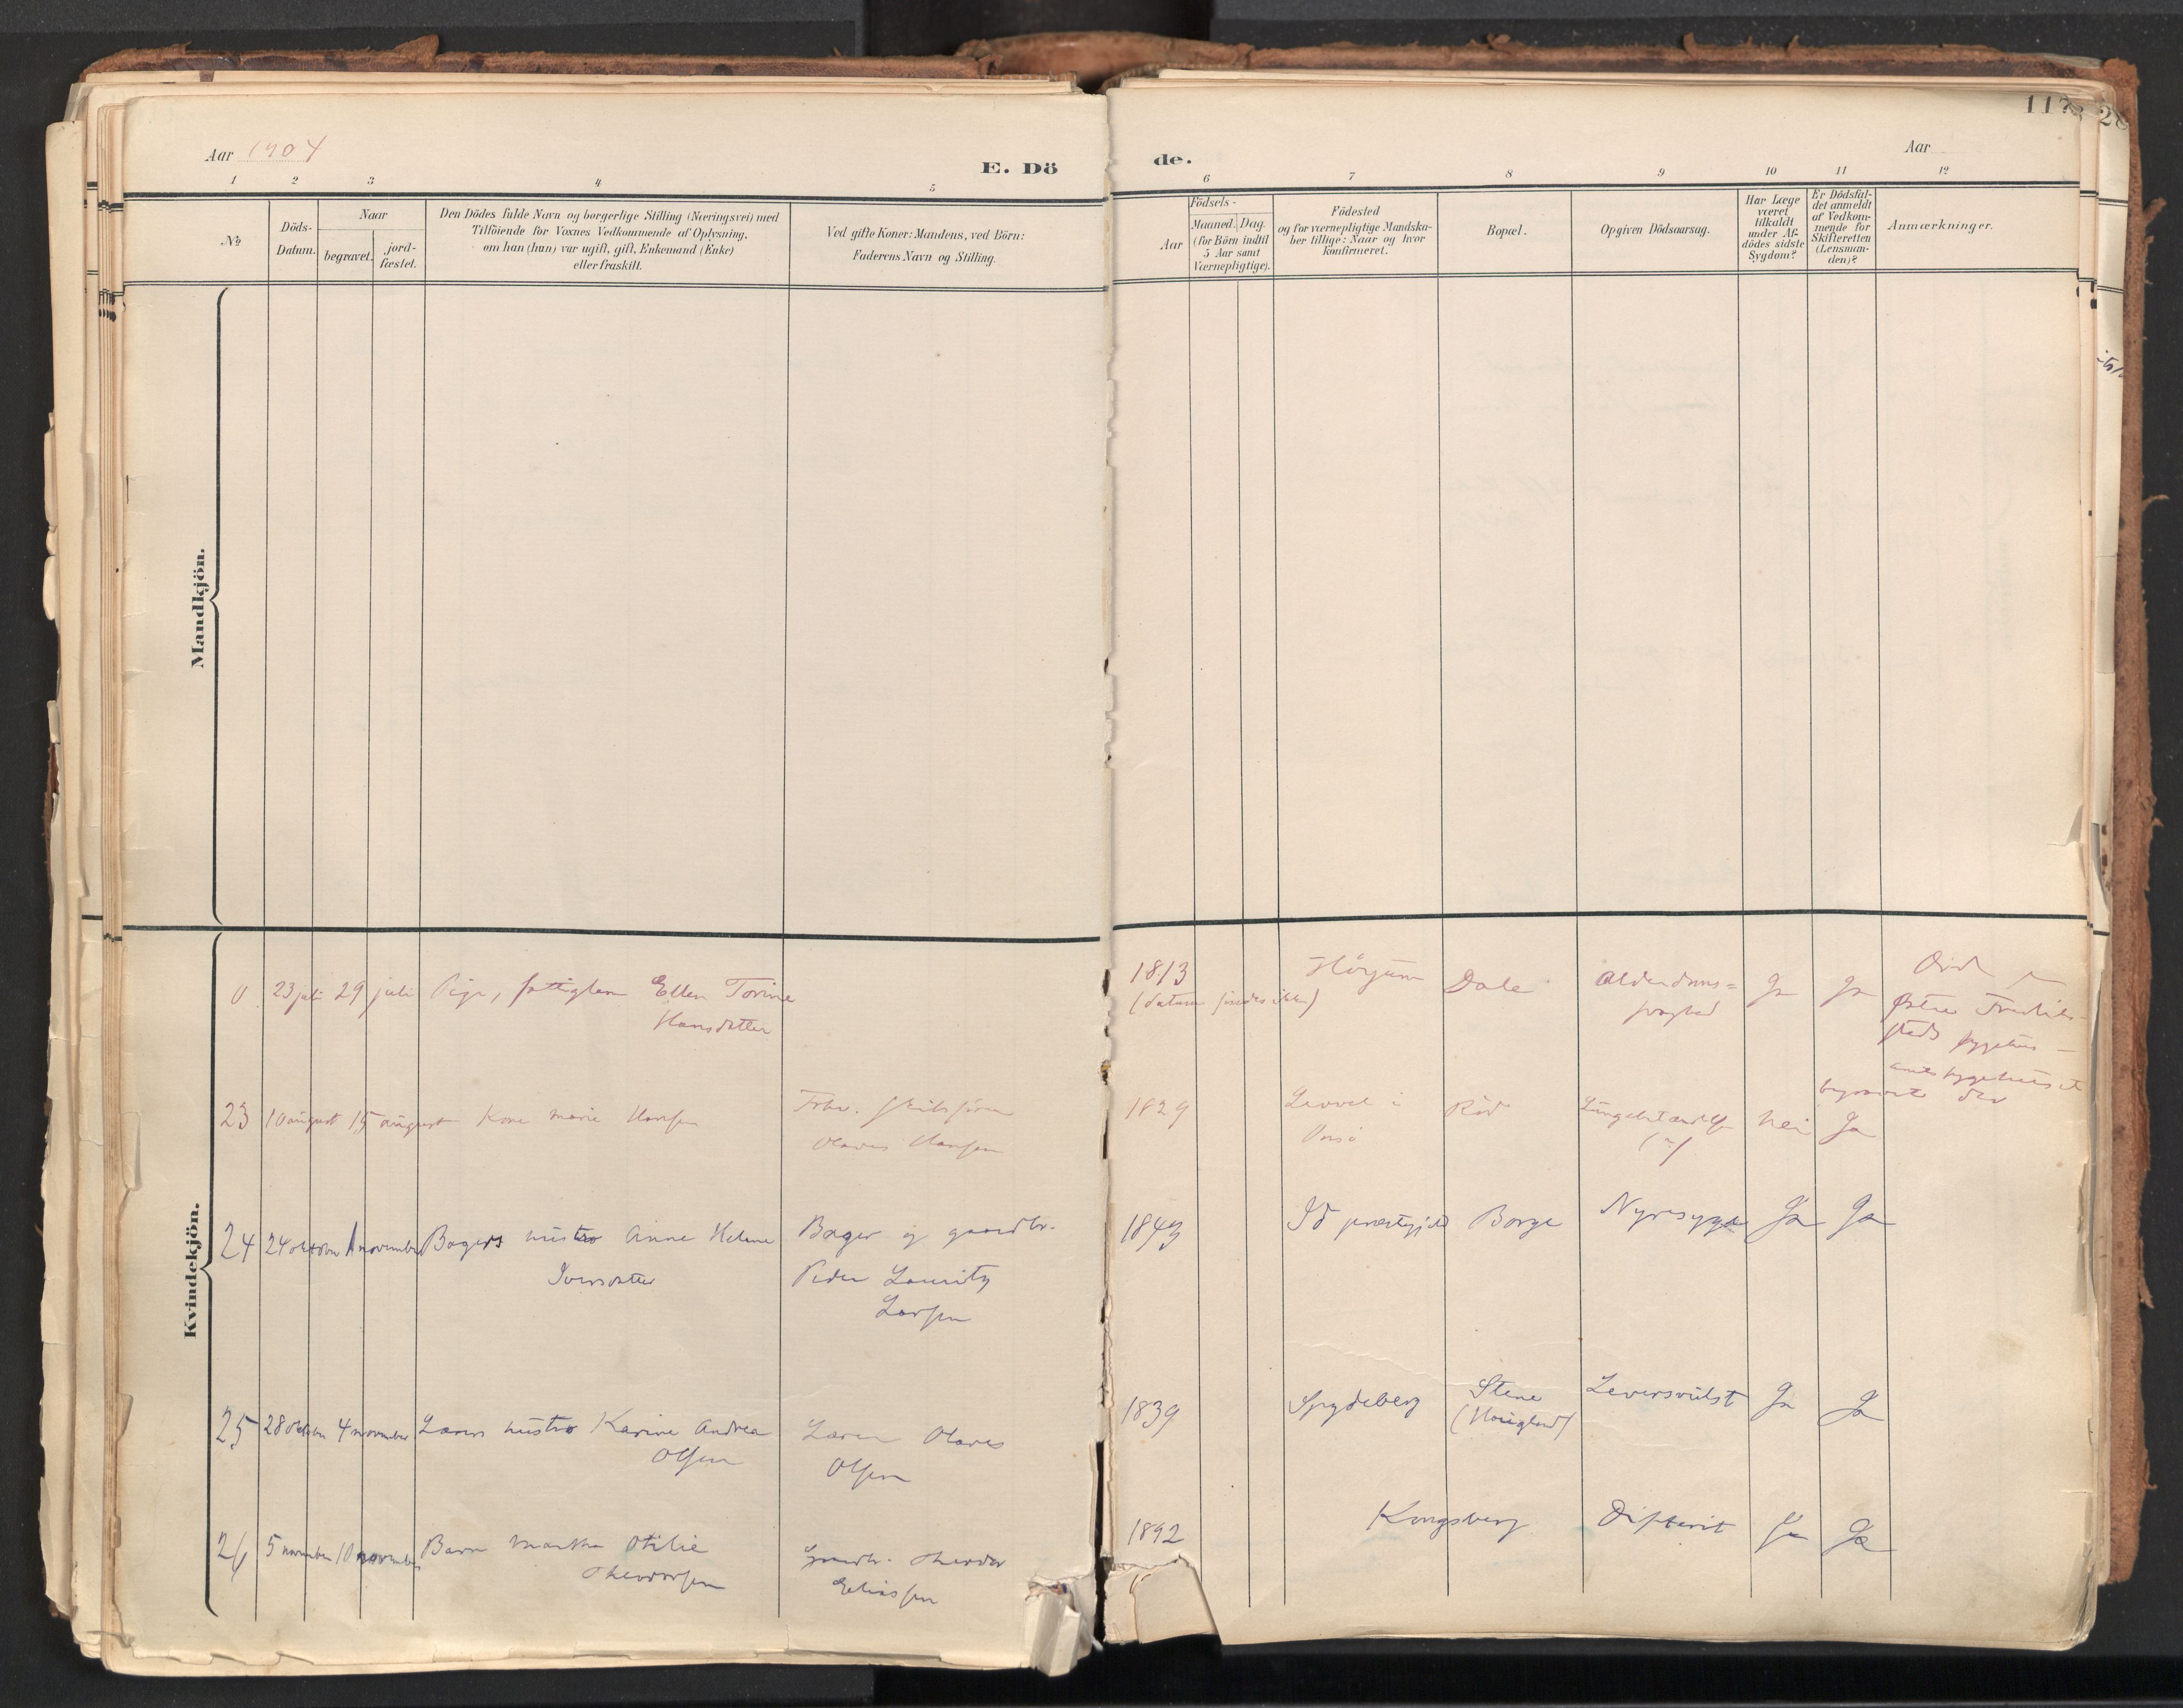 117
Aar 1904
E. Dö
de.
Aar
1 2 3 4 5 6 7 8 9 10 11 12
№
Döds-
Datum.
Naar
begravet.
jord-
fæstet.
Den Dödes fulde Navn og borgerlige Stilling (Næringsvei) med
Tilföiende for Voxnes Vedkommende af Oplysning,
om han (hun) var ugift, gift, Enkemand (Enke)
eller fraskilt.
Ved gifte Koner: Mandens, ved Börn:
Faderens Navn og Stilling.
Aar
Födsels-
Maaned. Dag.
(for Börn indtil
5 Aar samt
Værnepligtige).
Födested
og for værnepligtige Mandska-
ber tillige: Naar og hvor
konfirmeret.
Bopæl.
Opgiven Dödsaarsag.
Har Læge
været
tilkaldt
under Af-
dödes sidste
Sygdom?
Er Dödsfal-
det anmeldt
af Vedkom-
mende for
Skifteretten
(Lensman-
den)?
Anmærkninger.
Mandkjön.
Kvindekjön.
0 23 juli 29 juli Pige, fattiglem Ellen Torine
Hansdatter
1813
(datum findes ikke)
Dale
Alderdoms=
Ja Ja
Östre Fredrik-
stads sygehus
23 10 august 15 august Kone Marie Hansen
Olaves Hansen
1829
i
Onsö
Nei Ja
24 24 oktober 1 november Bagers hustro Anne Helene
Iversdatter
Bager og gaardbr.
Peder Lauritz
Larsen
1843 Id præstegjeld Borge Nyresyge Ja Ja
25 28 oktober 4 november hustro Karine Andrea
Olsen
Olaves
Olsen
1839 Spydeberg Stene
(Haugland)
Leversvulst Ja Ja
26 5 november 10 november Barn Martha Otilie
Theodorsen
Gaardbr. Theodor
Eliassen
1892 Kongsberg Difterit Ja Ja